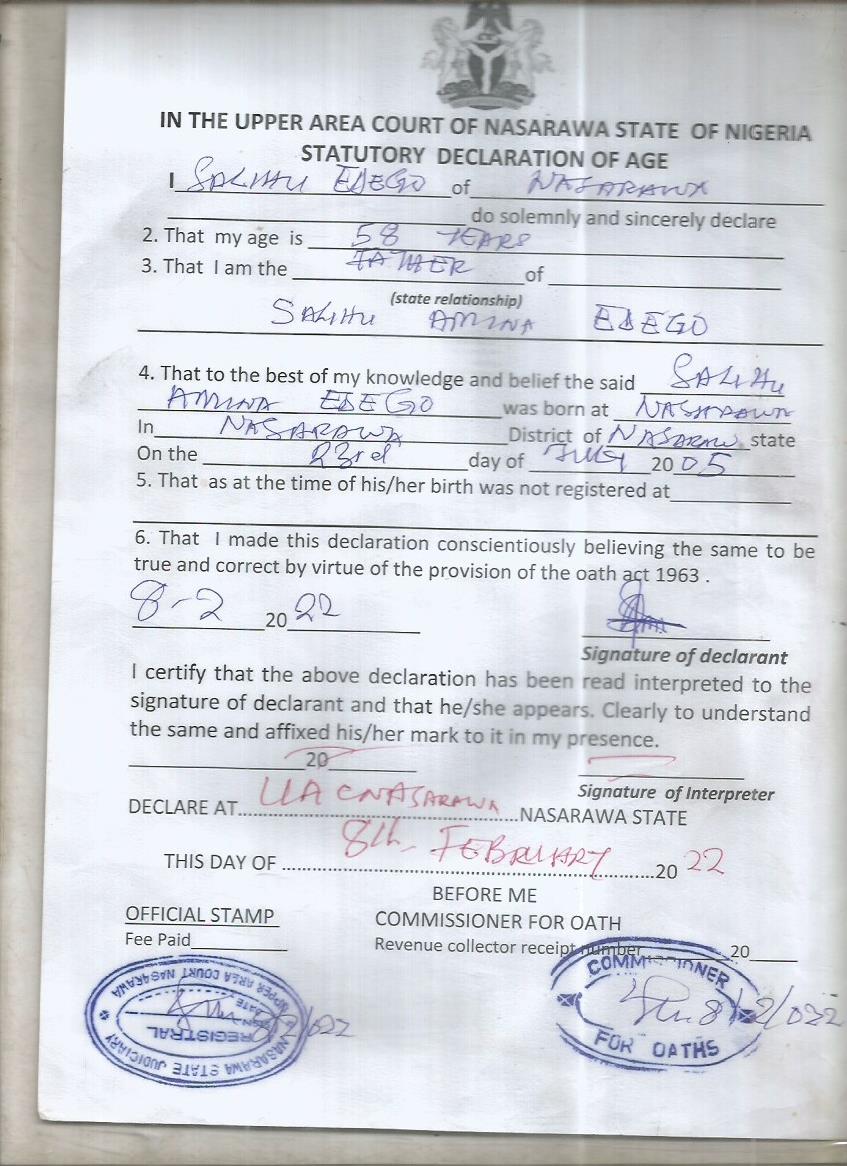 IN THE UPPER AREA COURT OF NASARAWA STATE OF NIGERIA
STATUTORY DECLARATION OF AGE
I SALIHU EDEGO of NASARAWA
do solemnly and sincerely declare
2. That my age is 58 YEARS
3. That I am the FATHER of
(state relationship)
SALIHU AMINA EDEGO
4. That to the best of my knowledge and belief the said SALIHU
AMINA EDEGO was born at NASARAWA
In NASARAWA District of NASARAW state
On the 23rd day of July 2005
5. That as at the time of his/her birth was not registered at
6. That I made this declaration conscientiously believing the same to be
true and correct by virtue of the provision of the oath act 1963 .
8-2 2022
Signature of declarant
I certify that the above declaration has been read interpreted to the
signature of declarant and that he/she appears. Clearly to understand
the same and affixed his/her mark to it in my presence.
20
Signature of Interpreter
DECLARE AT UAC NASARAWA NASARAWA STATE
THIS DAY OF 8th FEBRUARY 2022
BEFORE ME
OFFICIAL STAMP COMMISSIONER FOR OATH
Fee Paid Revenue collector receipt number 20
UPPER AREA COURT NASARAWA
SIGN DATE
REGISTRAL
NASARAWA STATE JUDICIARY
8/2/022
COMMISSIONER
8/2/022
FOR OATHS